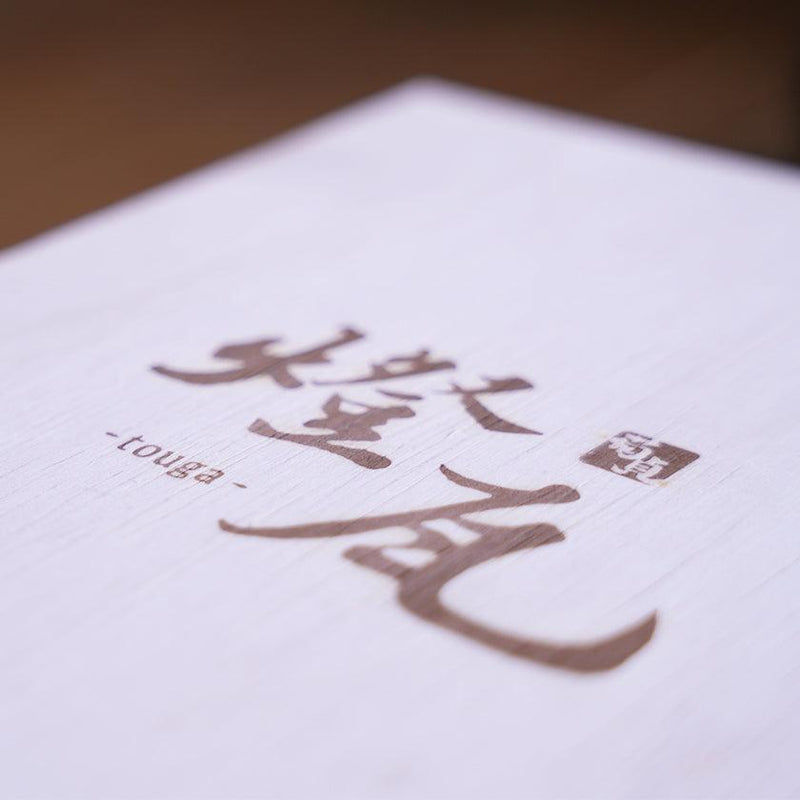 燈瓦
-touga-